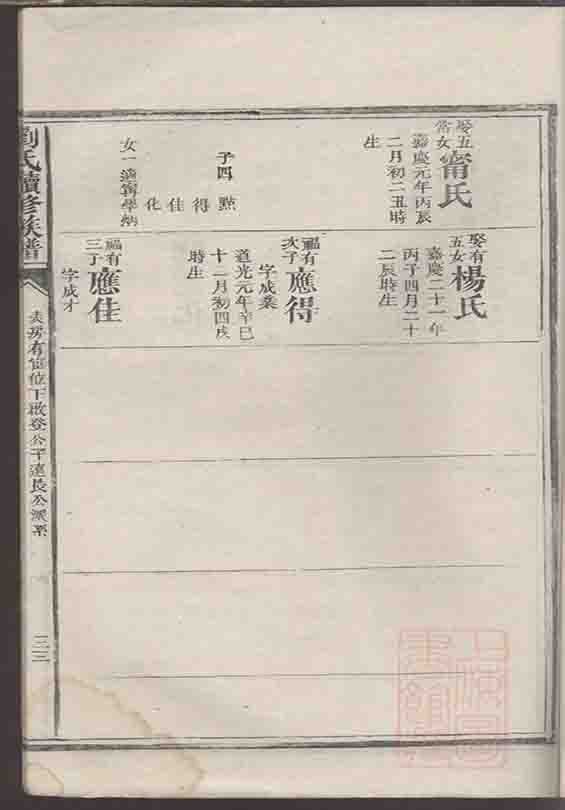 娶五
常女
甯氏
嘉慶元年丙辰
二月初二丑時
生
子四
點
得
佳
化
女一適甯學炳
娶有
五女
楊氏
嘉慶二十一年
丙子四月二十
二辰時生
福有
次子
應得
字成業
道光元年辛巳
十二月初四戌
時生
福有
三子
應佳
字成才
劉氏續修族譜
有富位下啟登公子達長公派系
三三